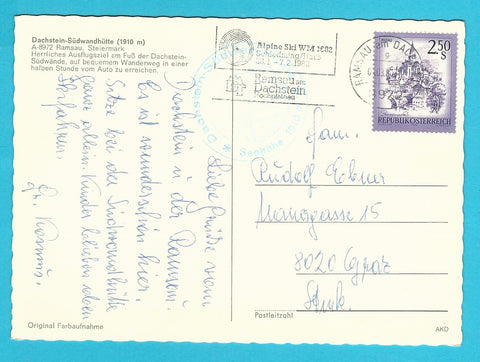 Dachstein-Südwandhütte (1910 m)
A-8972 Ramsau, Steiermark
Herrliches Ausflugsziel am Fuß der Dachstein-
Südwände, auf bequemem Wanderweg in einer
halben Stunde vom Auto zu erreichen.
Alpine Ski WM 1982
Schladming/Haus
Ramsau am
Dachstein
RAMSAU am DACH
2.50
S
REPUBLIK ÖSTERREICH
Seehöhe 1910
Liebe Grüße vom
Dachstein in der Ramsau.
Es ist wunderschön hier.
Sitze bei der Südwandhütte
ganz allein. Kinder blieben oben
Fam.
Rudolf Ebner
15
8020 Graz
Stmk.
Postleitzahl
Original Farbaufnahme
AKD